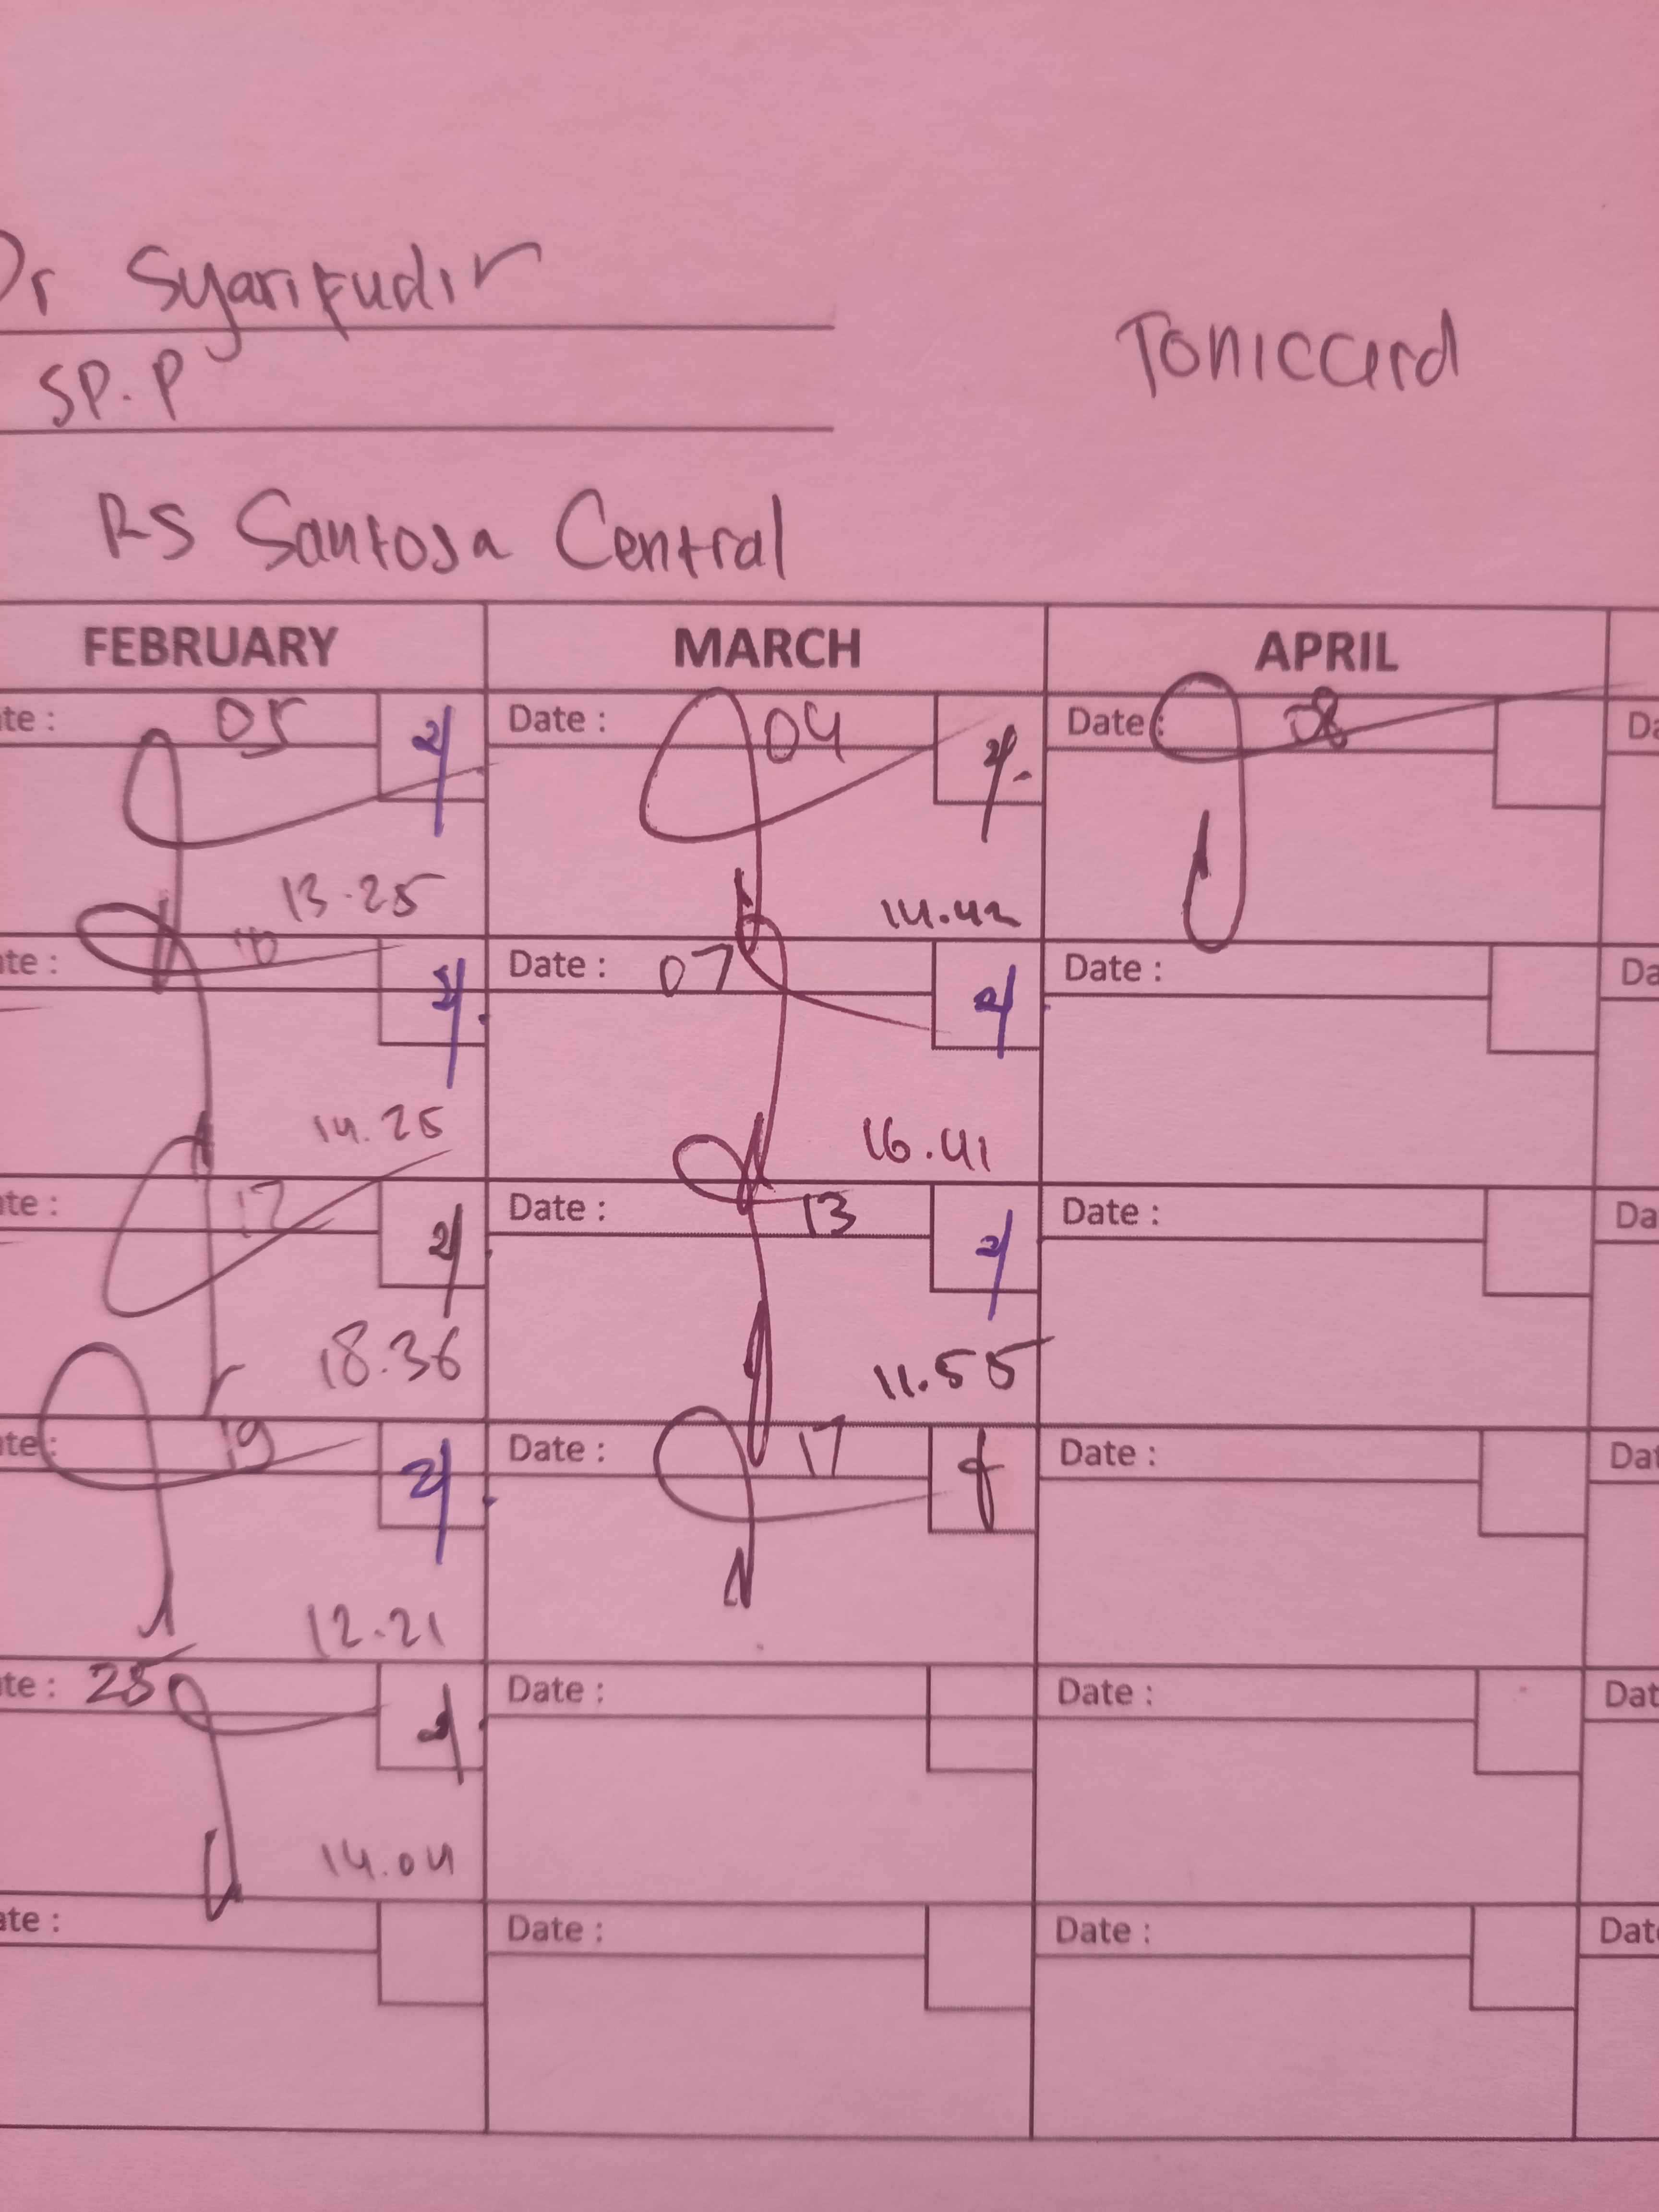 Dr Syarifudin
SP.P
Toniccard
RS Santosa Central
FEBRUARY MARCH APRIL
te : 05 Date : 04 Date : 08 Da
13.25 14.42
te : 10 Date : 07 Date : Da
14.25 16.41
te : 17 Date : 13 Date : Da
18.36 11.55
te : 19 Date : 17 Date : Dat
12.21
te : 25 Date : Date : Dat
14.04
ate : Date : Date : Dat